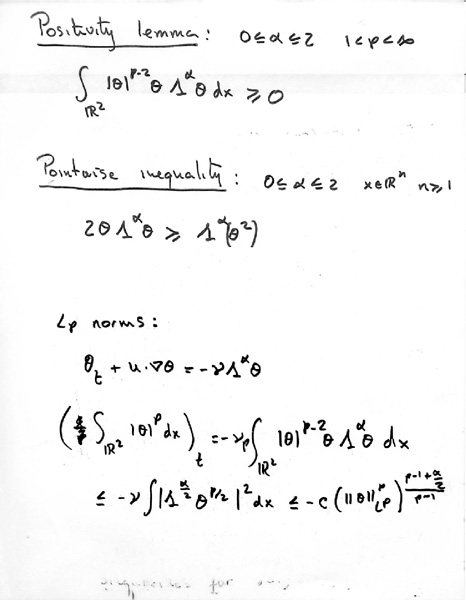 Positivity lemma: 0 ≤ α ≤ 2 1 < p < ∞
∫_{ℝ²} |θ|^{p-2} θ Λ^α θ dx ⩾ 0
Pointwise inequality: 0 ≤ α ≤ 2 x ∈ ℝⁿ n ⩾ 1
2θ Λ^α θ ⩾ Λ^α(θ²)
Lp norms:
θ_t + u·∇θ = -νΛ^α θ
(∫_{ℝ²} |θ|^p dx)_t = -νp ∫_{ℝ²} |θ|^{p-2} θ Λ^α θ dx
≤ -ν ∫ |Λ^{α/2} θ^{p/2}|² dx ≤ -c (||θ||_{Lp}^p)^{(p-1+α/2)/(p-1)}